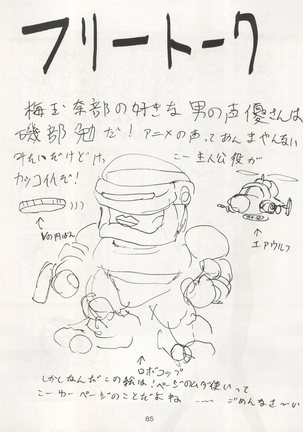 フリートーク
梅玉奈部の好きな男の声優さんは
磯部勉だ! アニメの声ってあんまやんない
みたいだけどけ、こー主人公役が
カッコイイぞ!
エアウルフ
ロボコップ
しかしなんだこの絵は!ページのムダ使いって
こーゆーページのことだよね ---- ごめんなさーい
85